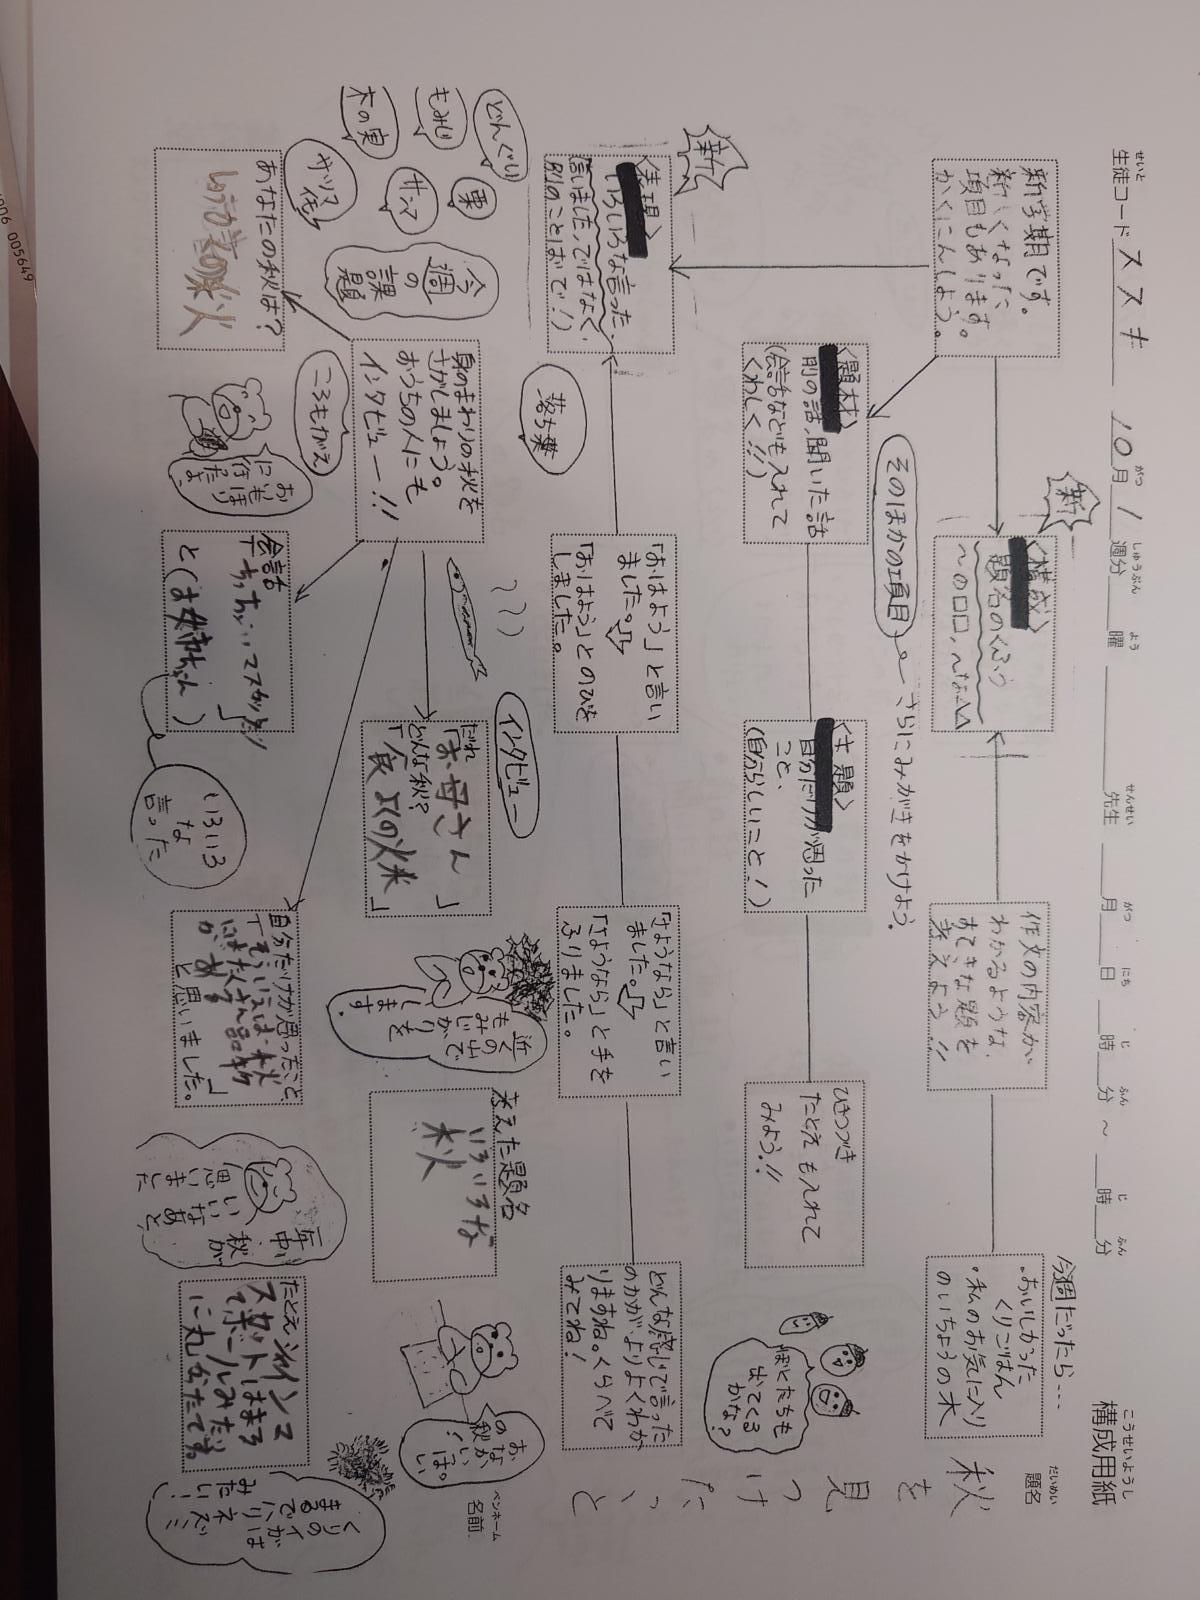 構成用紙
こうせいようし
せいと
生徒コード ススキ 10月 1週分 曜 先生 月 日 時 分 ~ 時 分
がつ しゅうぶん よう せんせい がつ にち じ ふん じ ふん
だいめい
題名
秋を見つけたこと
ペンネーム
名前
新学期です。
新しくなった
項目もあります。
かくにんしよう。
新
〈構成〉
題名のくふう
~の□□、~な△△
作文の内容が
わかるような、
すてきな題を
考えよう!!
今週だったら…
・おいしかった
くりごはん
・私のお気に入り
のいちょうの木
そのほかの項目
さらにみがきをかけよう。
〈題材〉
別の話、聞いた話
(会話なども入れて
くわしく!!)
〈主題〉
自分だけが思った
こと、
(自分らしいこと!)
ひきつづき
たとえも入れて
みよう!!
ぼくたちも
出てくる
かな?
新
〈表現〉
いろいろな言った、
言いました、ではなく、
別のことばで!)
「おはよう」と言い
ました。
「おはよう」とのびを
しました。
「さようなら」と言い
ました。
「さようなら」と手を
ふりました。
どんな感じで言った
のかが、よりよくわか
りますね。くらべて
みてね!
どんぐり
もみじ
木の実
栗
サンマ
サツマイモ
落ち葉
今週の
課題
身のまわりの秋を
さがしましょう。
おうちの人にも
インタビュー!!
ころもがえ
インタビュー
だれ
「お母さん」
どんな秋?
「食よくの秋」
近くの山で
もみじがりを
します。
考えた題名
いろいろな
秋
おなか
の秋が
いっぱい。
あなたの秋は?
おにもほり
に作
だよ
会話
と(は姉ちゃん)
いろいろ
な
言った
自分だけが思ったこと、
「そういえば、秋
にはたくさん品物
がある」
と思いました。
年中
秋が
いいなあと、
思いました
たとえ
シャインマ
スカットはまる
でボールみたい
に丸かったです
くりの
イガは
まるでハリ
ネズミ
みたい!
006 005649